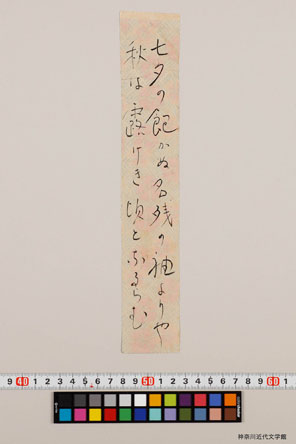 七夕の飽かぬ名残の袖よりや
秋は露けき頃となるらむ
9 40 1 2 3 4 5 6 7 8 9 50 1 2 3 4 5 6 7 8 9 60 1
神奈川近代文学館